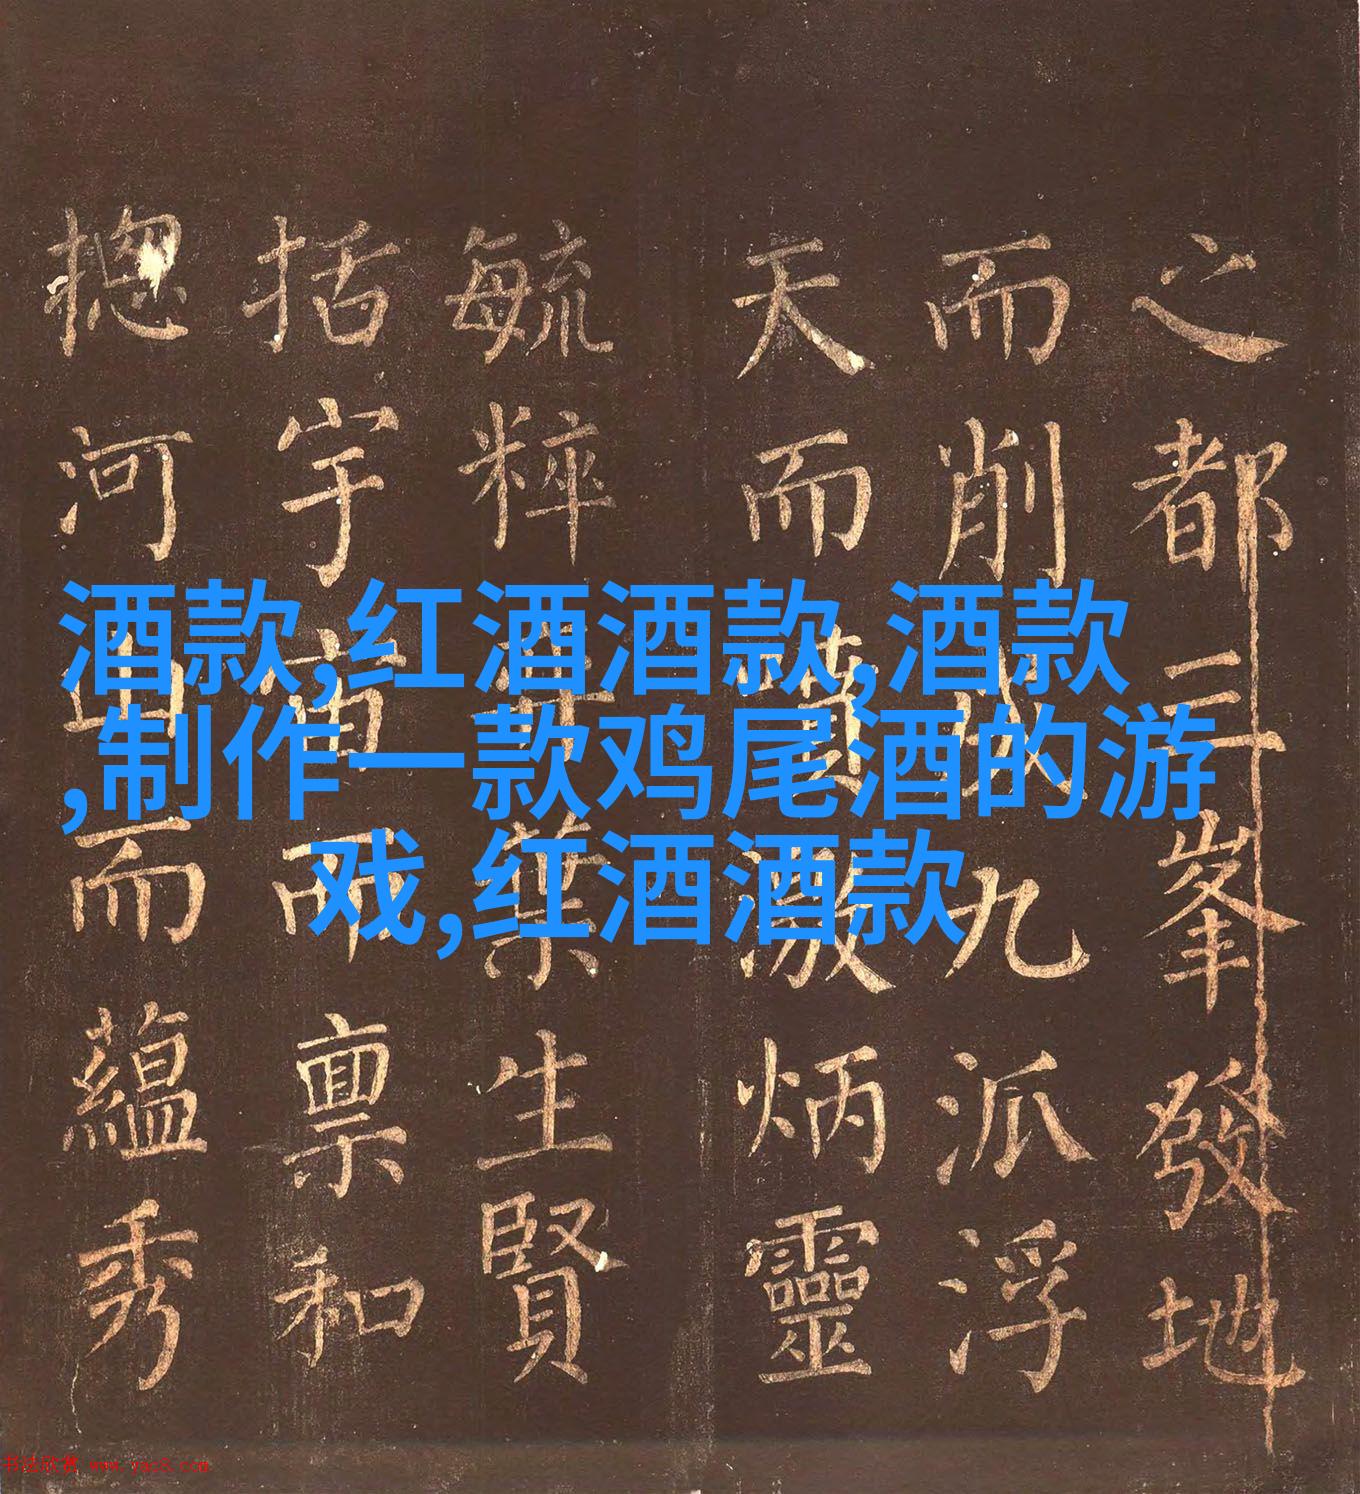 酒款,红酒酒款,酒款
,制作一款鸡尾酒的游
戏,红酒酒款
之都三峯發地
而削成九派浮
天而激炳靈
毓粹葉生賢
括宇宙而禀和
揔河山而蘊秀
书法欣赏 www.yac8.com